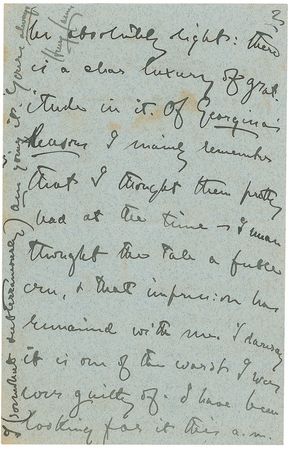 be absolutely right: there
is a clear luxury of grat-
itude in it. Of Georgina's
Reasons I mainly remember
that I thought them pretty
bad at the time – I mean
thought the tale a feeble
one, & that impression has
remained with me. I daresay
it is one of the worst I was
ever guilty of. I have been
looking for it this a.m.
subterraneously) am it. Yours always
Henry James